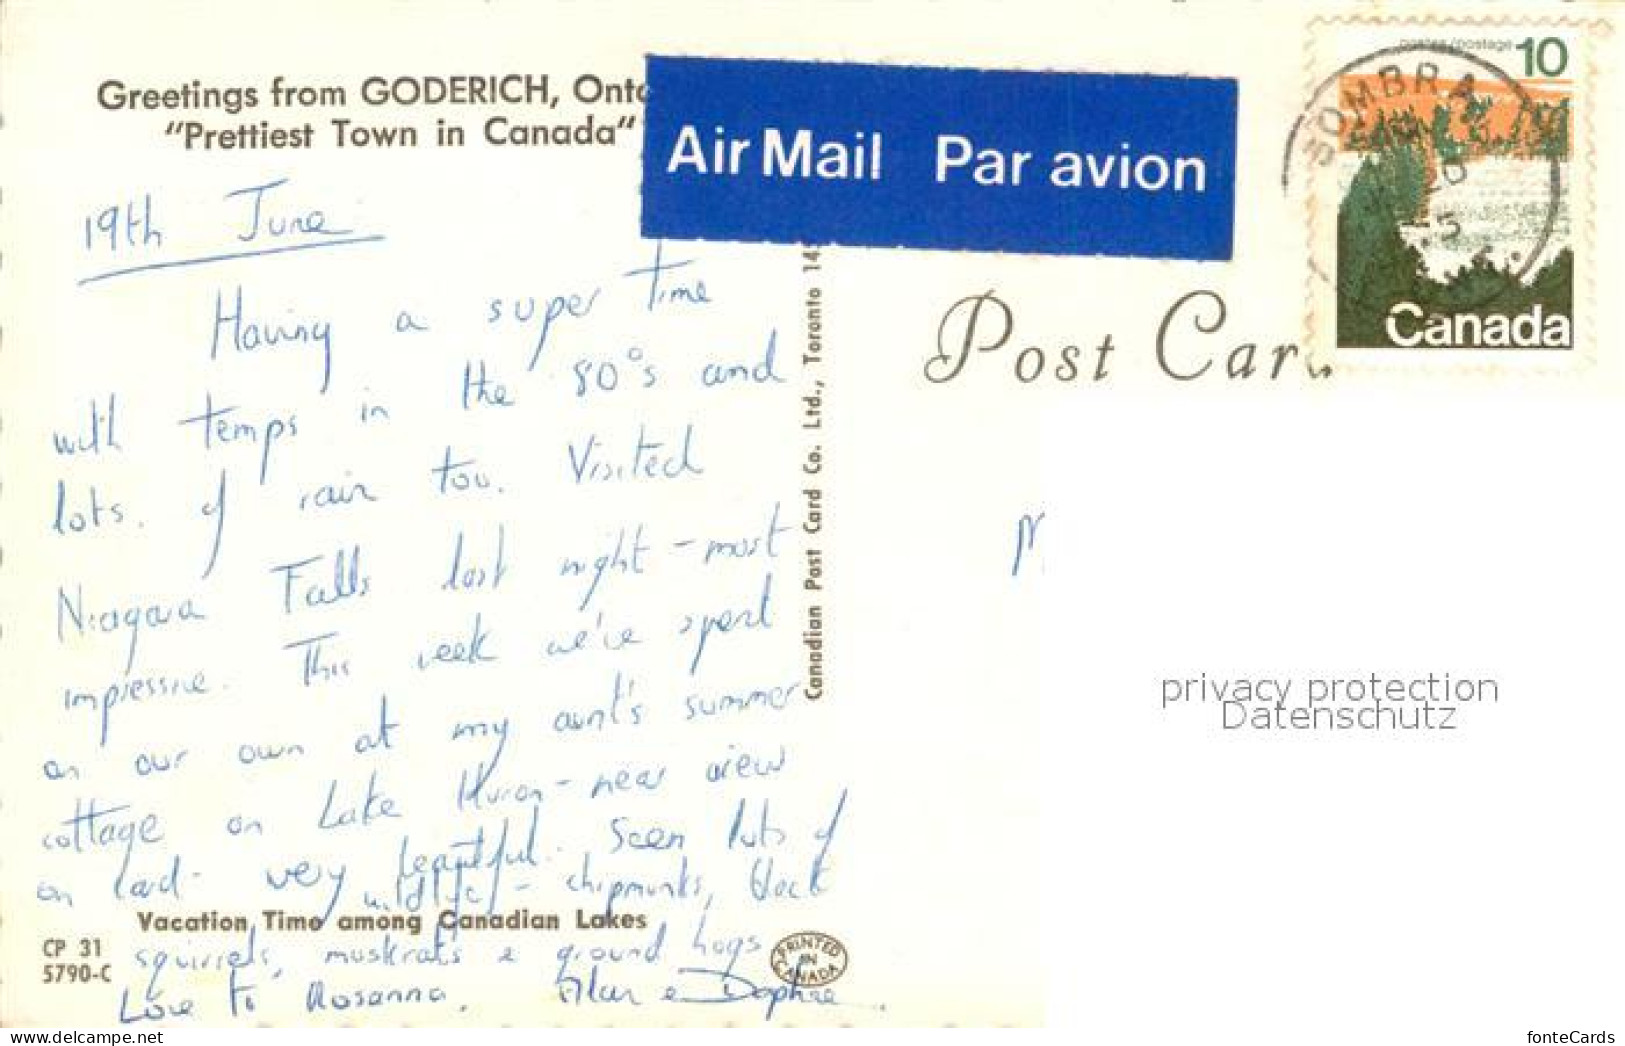 Greetings from GODERICH, Onta
"Prettiest Town in Canada"
Air Mail Par avion
postes/postage 10
SOMBRA
Canada
Post Car
19th June
Having a super time
with temps in the 80°s and
lots. of rain too. Visited
Niagara Falls last night - most
impressive. This week we've spent
on our own at my aunt's summer
cottage on Lake Huron - near view
on card - very beautiful. Seen lots of
wildlife - chipmunks, black
Vacation Time among Canadian Lakes
squirrels, muskrats & ground hogs
CP 31
5790-C
Love to Rosanna. Alan & Daphne.
PRINTED IN CANADA
Canadian Post Card Co. Ltd., Toronto 14
privacy protection
Datenschutz
fonteCards